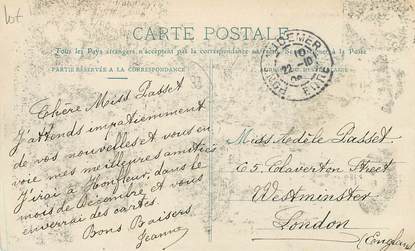 lot
CARTE POSTALE
Tous les Pays étrangers n'acceptent pas la correspondance au recto. Se renseigner à la Poste
PARTIE RÉSERVÉE A LA CORRESPONDANCE
22 - 10
Chère Miss Passet
J'attends impatiemment
de vos nouvelles et vous en
voie mes meilleures amitiés
J'irai à Honfleur, dans le
mois de Décembre et vous
enverrai des cartes.
Bons Baisers
Jeanne
Miss Adèle Passet
65. Claverton Street
Westminster
London
(England